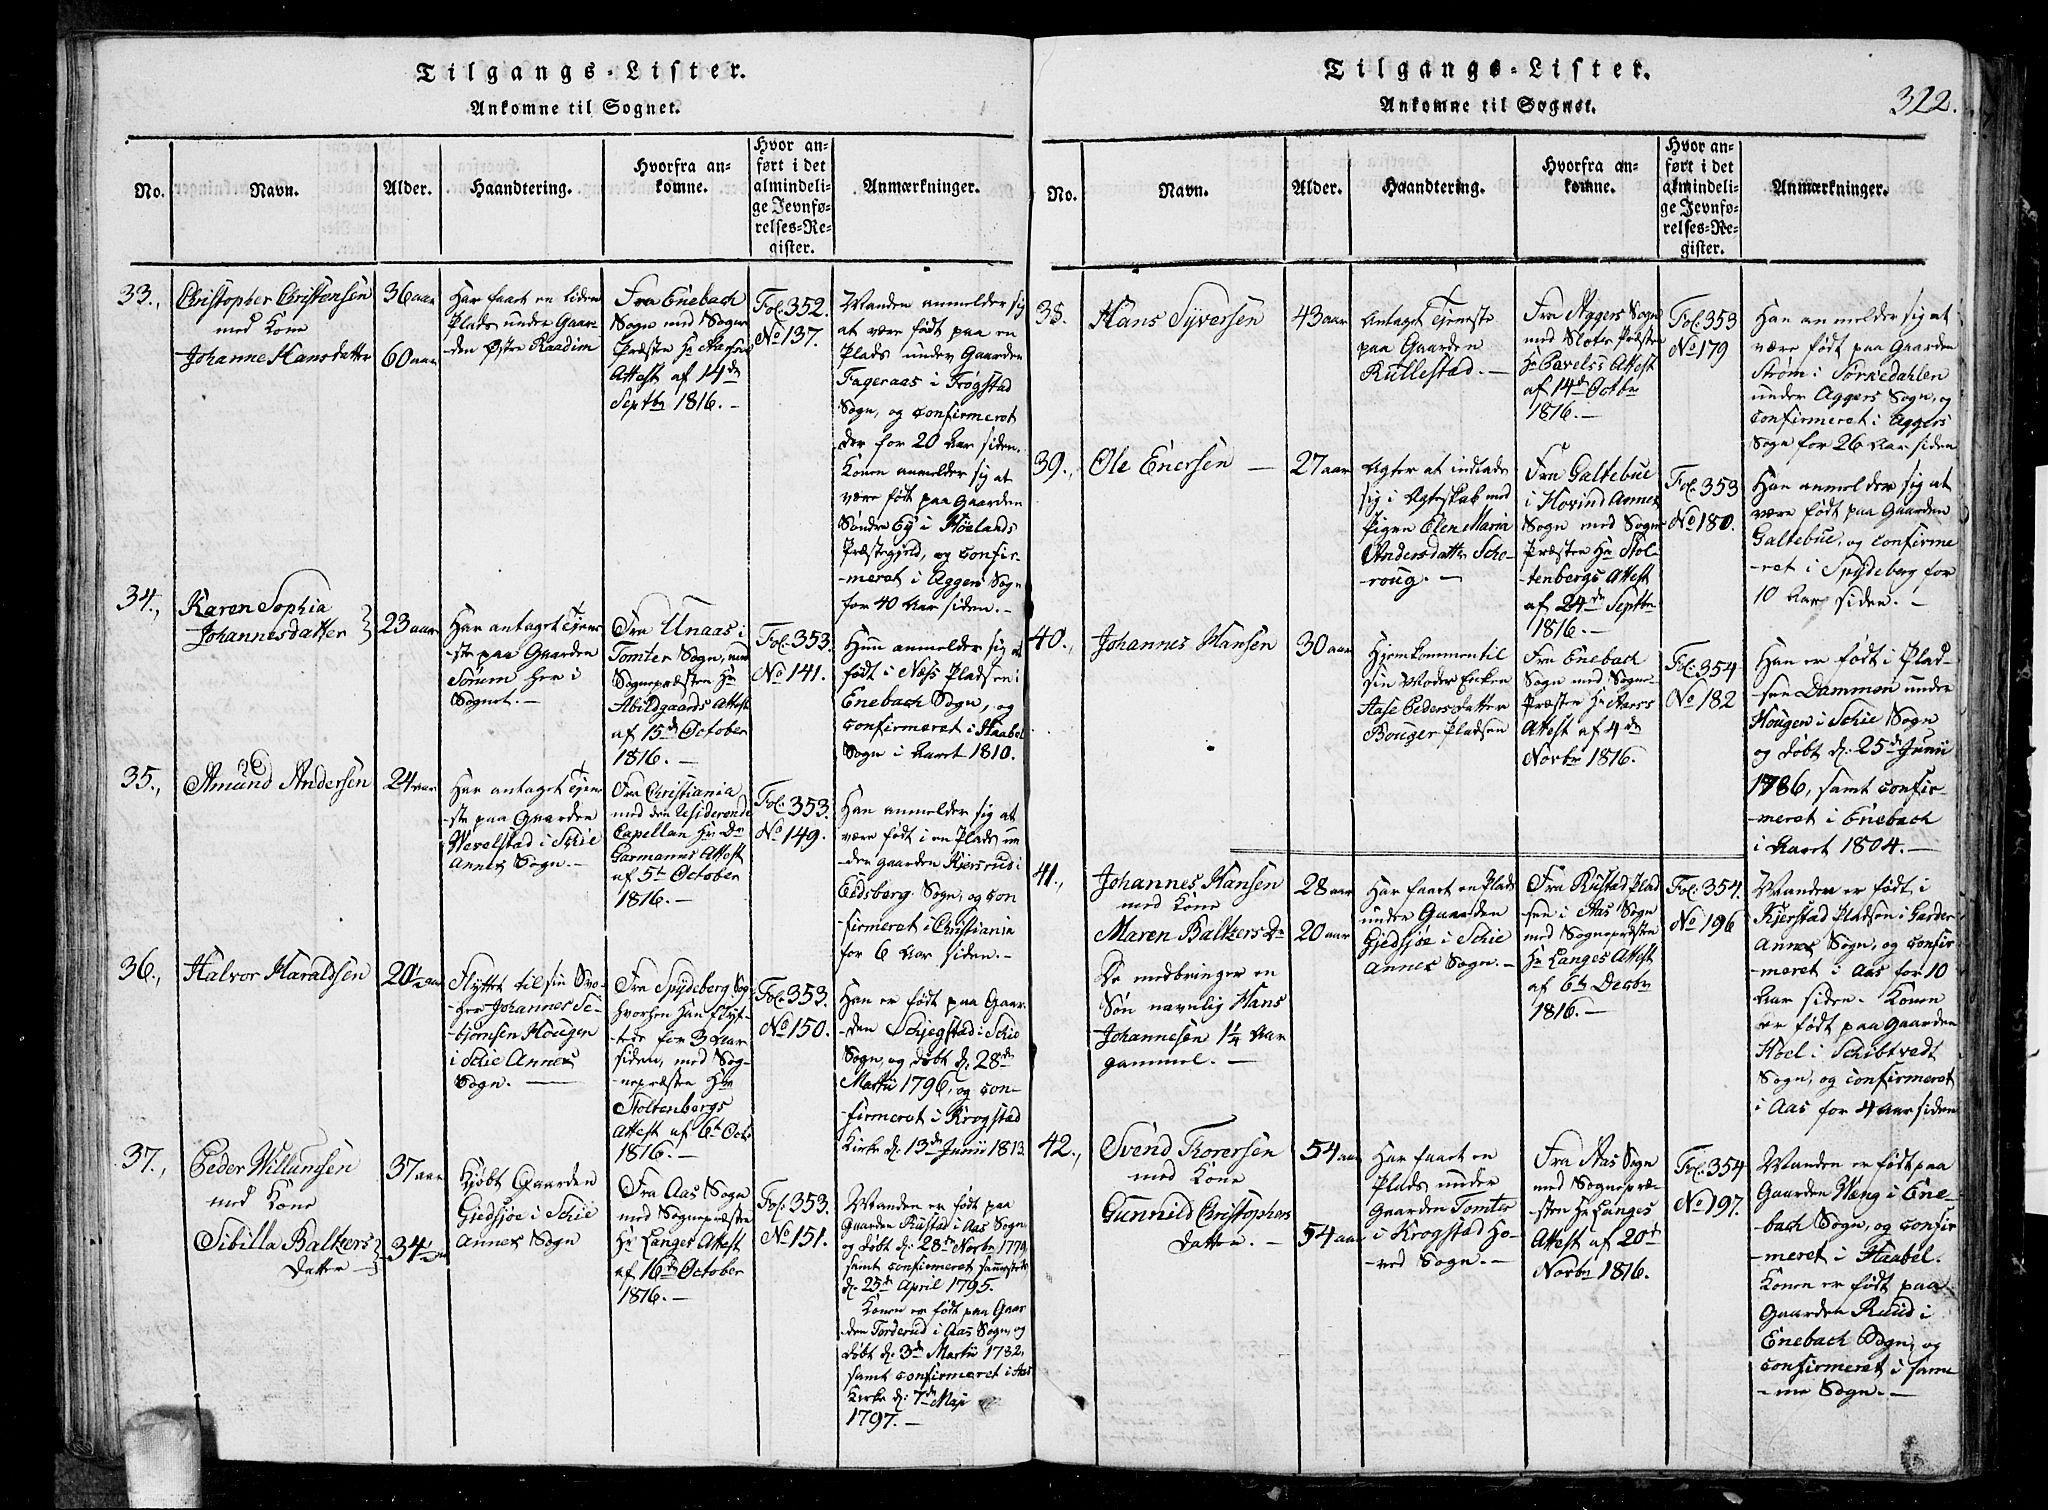 Tilgangs-Lister.
Ankomne til Sognet.
No.
Navn.
Alder.
Haandtering.
Hvorfra an-
komne.
Hvor an-
ført i det
almindeli-
ge Jevnfø-
relses-Re-
gister.
Anmærkninger.
33.,
Christopher Christensen
med Kone
Johanne Hansdatter
36 aar
60 aar
Har faaet en liden
Plads under Gaar-
den Østre Raadim
Fra Enebach
Sogn med Sogne
Præsten Hr Aarsen
Attest af 14de
Septbr 1816. —
Fol: 352.
No 137.
Manden anmelder sig
at være født paa en
Plads under Gaarden
Fageraas i Frøgstad
Sogn, og confirmeret
der for 20 Aar siden.
Konen anmelder sig at
være født paa Gaarden
Søndre Ey i Hølands
Præstegjeld, og confir-
-meret i Aggers Sogn
for 40 Aar siden. —
34.,
Karen Sophia
Johannesdatter
23 aar
Har antaget Tjene-
ste paa Gaarden
Sørum her i
Sognet. —
Fra Unaas i
Tomter Sogn, med
Sognepræsten Hr
Abildgaards Attest
af 15de October
1816. —
Fol: 353.
No 141.
Hun anmelder sig at
født i Næss Pladsen i
Enebach Sogn, og
confirmeret i Haabel
Sogn i Aaret 1810. —
35.,
Amund Andersen
24 aar
Har antaget Tjene-
ste paa Gaarden
Wevelstad i Schie
Annex Sogn. —
Fra Christiania
med den residerende
Capellan Hr Dr
Garmanns Attest
af 5te October
1816. —
Fol: 353.
No 149.
Han anmelder sig at
være født i en Plads un-
-der gaarden Kjersrud i
Eidsberg Sogn, og con
-firmeret i Christiania
for 6 Aar siden. —
36.,
Halvor Haraldsen
20½ aar
Flyttet til sin Svo-
-her Johannes Si-
bjørnsen Hougen
i Schie Annex
Sogn. —
Fra Spydeberg Sogn
hvorhen han flyt-
tede for 3 Aar
siden, med Sog-
nepræsten Hr
Stoltenbergs
Attest af 6te Octr
1816. —
Fol: 353.
No 150.
Han er født paa Gaar-
den Schjegstad i Schie
Sogn, og døbt d: 28de
Martii 1796, og con-
-firmeret i Krogstad
Kirke d: 13de Junii 1813.
37.,
Peder Willumsen
med Kone
Sibilla Baltzers
Datter —
37 aar
34½ aar
Kjøbt Gaarden
Gjedsjøe i Schie
Annex Sogn
Fra Aas Sogn
med Sognepræsten
Hr Langes Attest
af 16de October
1816. —
Fol: 353.
No 151.
Manden er født paa
Gaarden Rustad i Aas Sogn,
og døbt d: 28de Novbr 1779,
samt confirmeret sammesteds
d: 25de April 1795.
Konen er født paa Gaar
-den Torderud i Aas Sogn, og
døbt d: 3de Martii 1782,
samt confirmeret i Aas
Kirke d: 7de Maji
1797. —
Tilgangs-Lister.
Ankomne til Sognet.
322.
No.
Navn.
Alder.
Haandtering.
Hvorfra an-
komne.
Hvor an-
ført i det
almindeli-
ge Jevnfø-
relses-Re-
gister.
Anmærkninger.
38.
Hans Syversen
43 aar
Antaget Tjeneste
paa Gaarden
Rullestad. —
Fra Aggers Sogn
med Slots Præsten
Hr Pavels's Attest
af 14de Octbr
1816. —
Fol: 353
No 179
Han anmelder sig at
være født paa Gaarden
Strøm i Sørkedahlen
under Aggers Sogn, og
confirmeret i Aggers
Sogn for 26 Aar siden
39.,
Ole Enersen —
27 aar
Agter at indtræde
sig i Ægteskab med
Pigen Elen Maria
Andersdatter Scho-
-roug. —
Fra Galtebue
i Hovind Annex
Sogn med Sogne
Præsten Hr Stol-
tenbergs Attest
af 24de Septbr
1816. —
Fol: 353
No 180.
Han anmelder sig at
være født paa Gaarden
Galtebue, og confirme
-ret i Spydeberg for
10 Aar siden. —
40.,
Johannes Hansen
30 aar
Hjemkommen til
sin Moder Enken
Aase Pedersdatter
Bouger Pladsen
Fra Enebach
Sogn med Sogne-
Præsten Hr Aarss
Attest af 4de
Novbr 1816.
Fol: 354
No 182
Han er født i Plad-
sen Dammen under
Hougen i Schie Sogn
og døbt d: 25de Junii
1786, samt confir-
-meret i Enebach
i Aaret 1804. —
41.,
Johannes Hansen
med Kone
Maren Baltzers Dr
De medbringer en
Søn navnlig Hans
Johannesen 1¼ Aar
gammel. —
28 aar
20 aar
Har faaet en Plads
under Gaarden
Gjedsjøe i Schie
Annex Sogn. —
Fra Rustad Plad
sen i Aas Sogn
med Sognepræsten
Hr Langes Attest
af 6te Decbr
1816. —
Fol: 354.
No 196
Manden er født i
Kjerstad Pladsen i Garder
Annex Sogn, og confir
-meret i Aas for 10
Aar siden — Konen
er født paa Gaarden
Hoel i Schibtvedt
Sogn, og confirmeret
i Aas for 4 Aar siden
42.,
Svend Torersen
med Kone
Gunnild Christophers
datter. —
54 aar
54 aar
Har faaet en
Plads under
Gaarden Tomter
i Krogstad Ho-
-ved Sogn. —
Fra Aas Sogn
med Sognepræ-
sten Hr Langes
Attest af 20de
Novbr 1816.
Fol: 354
No 197.
Manden er født paa
Gaarden Wæng i Ene-
bach Sogn, og confir
-meret i Haabel.
Konen er født paa
Gaarden Ruud i
Enebach Sogn, og
confirmeret i sam-
-me Sogn. —